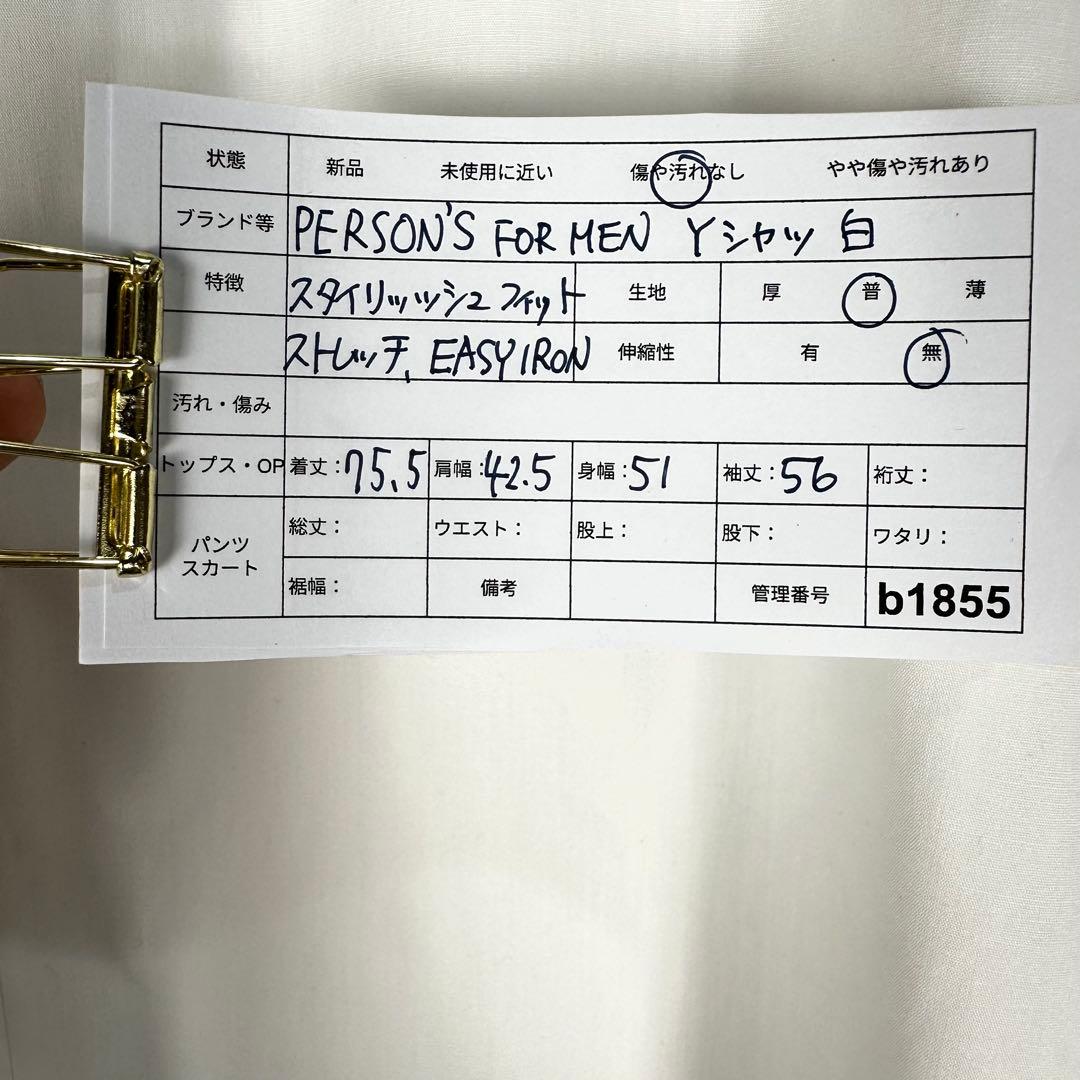 状態 新品 未使用に近い 傷や汚れなし やや傷や汚れあり
ブランド等 PERSON'S FOR MEN Yシャツ 白
特徴 スタイリッッシュフィット 生地 厚 普 薄
ストレッチ、EASY IRON 伸縮性 有 無
汚れ・傷み
トップス・OP 着丈：75.5 肩幅：42.5 身幅：51 袖丈：56 裄丈：
パンツ スカート 総丈： ウエスト： 股上： 股下： ワタリ：
裾幅： 備考 管理番号 b1855